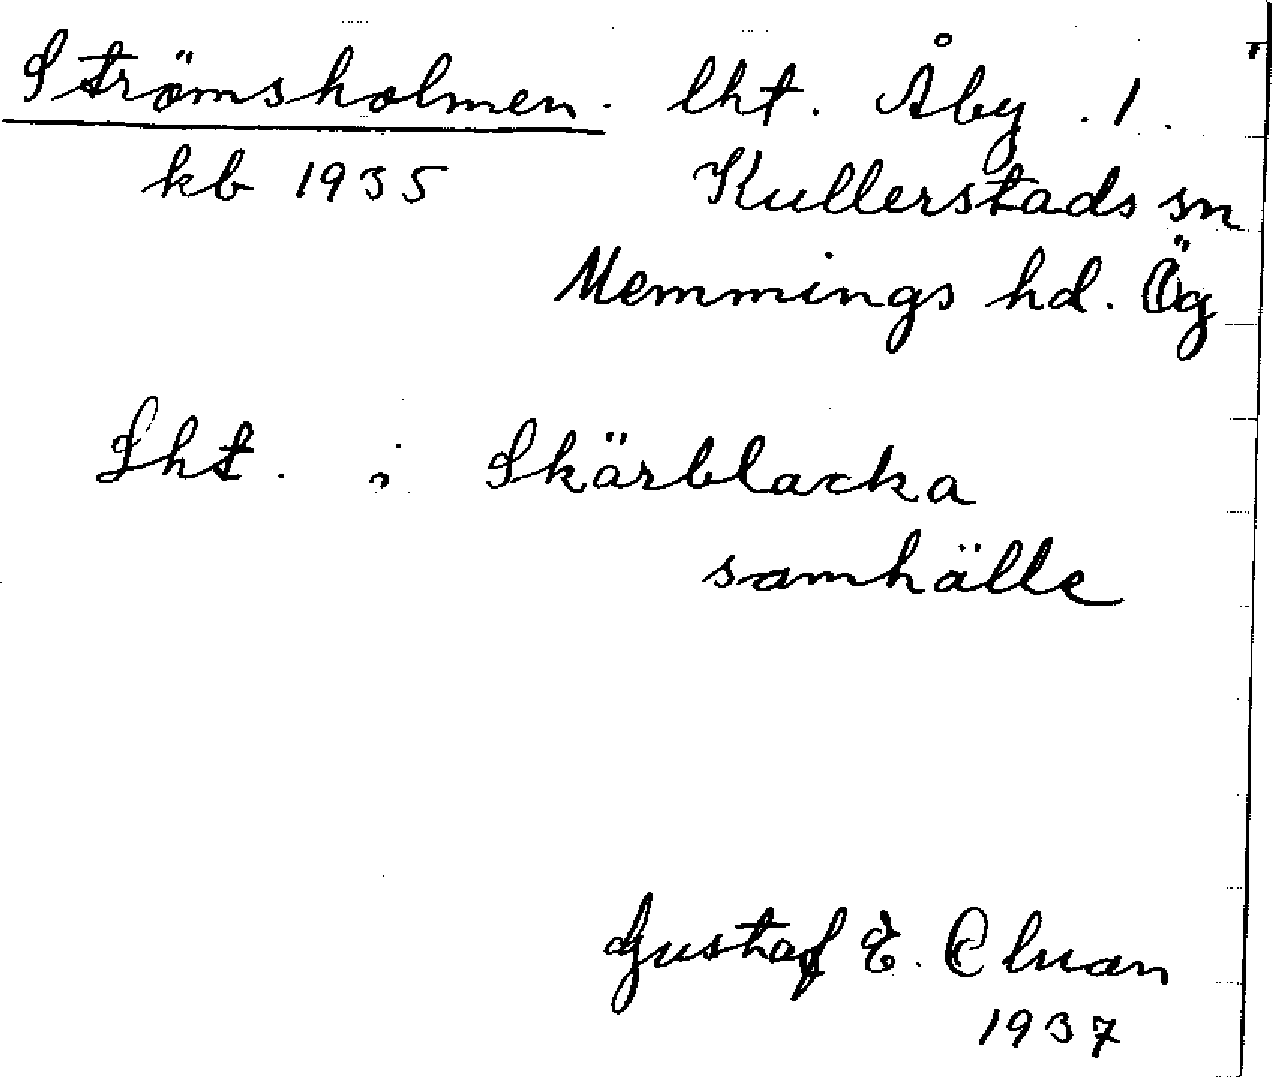 Strömsholmen. lht. Åby .1.
kb 1935 Kullerstads sn
Memmings hd. Ög
Lht. i Skärblacka
samhälle
Gustaf E.
1937